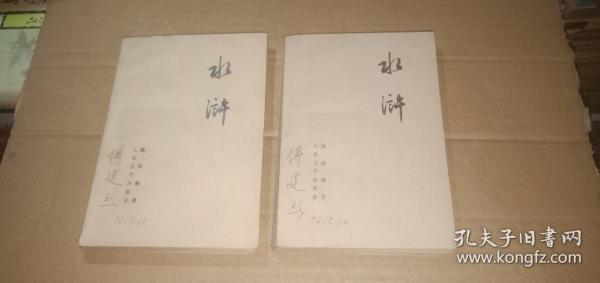 水
浒
施耐庵著
人民文学出版社
傅建
水
浒
施耐庵著
人民文学出版社
傅建
孔夫子旧书网
www.kongfz.com